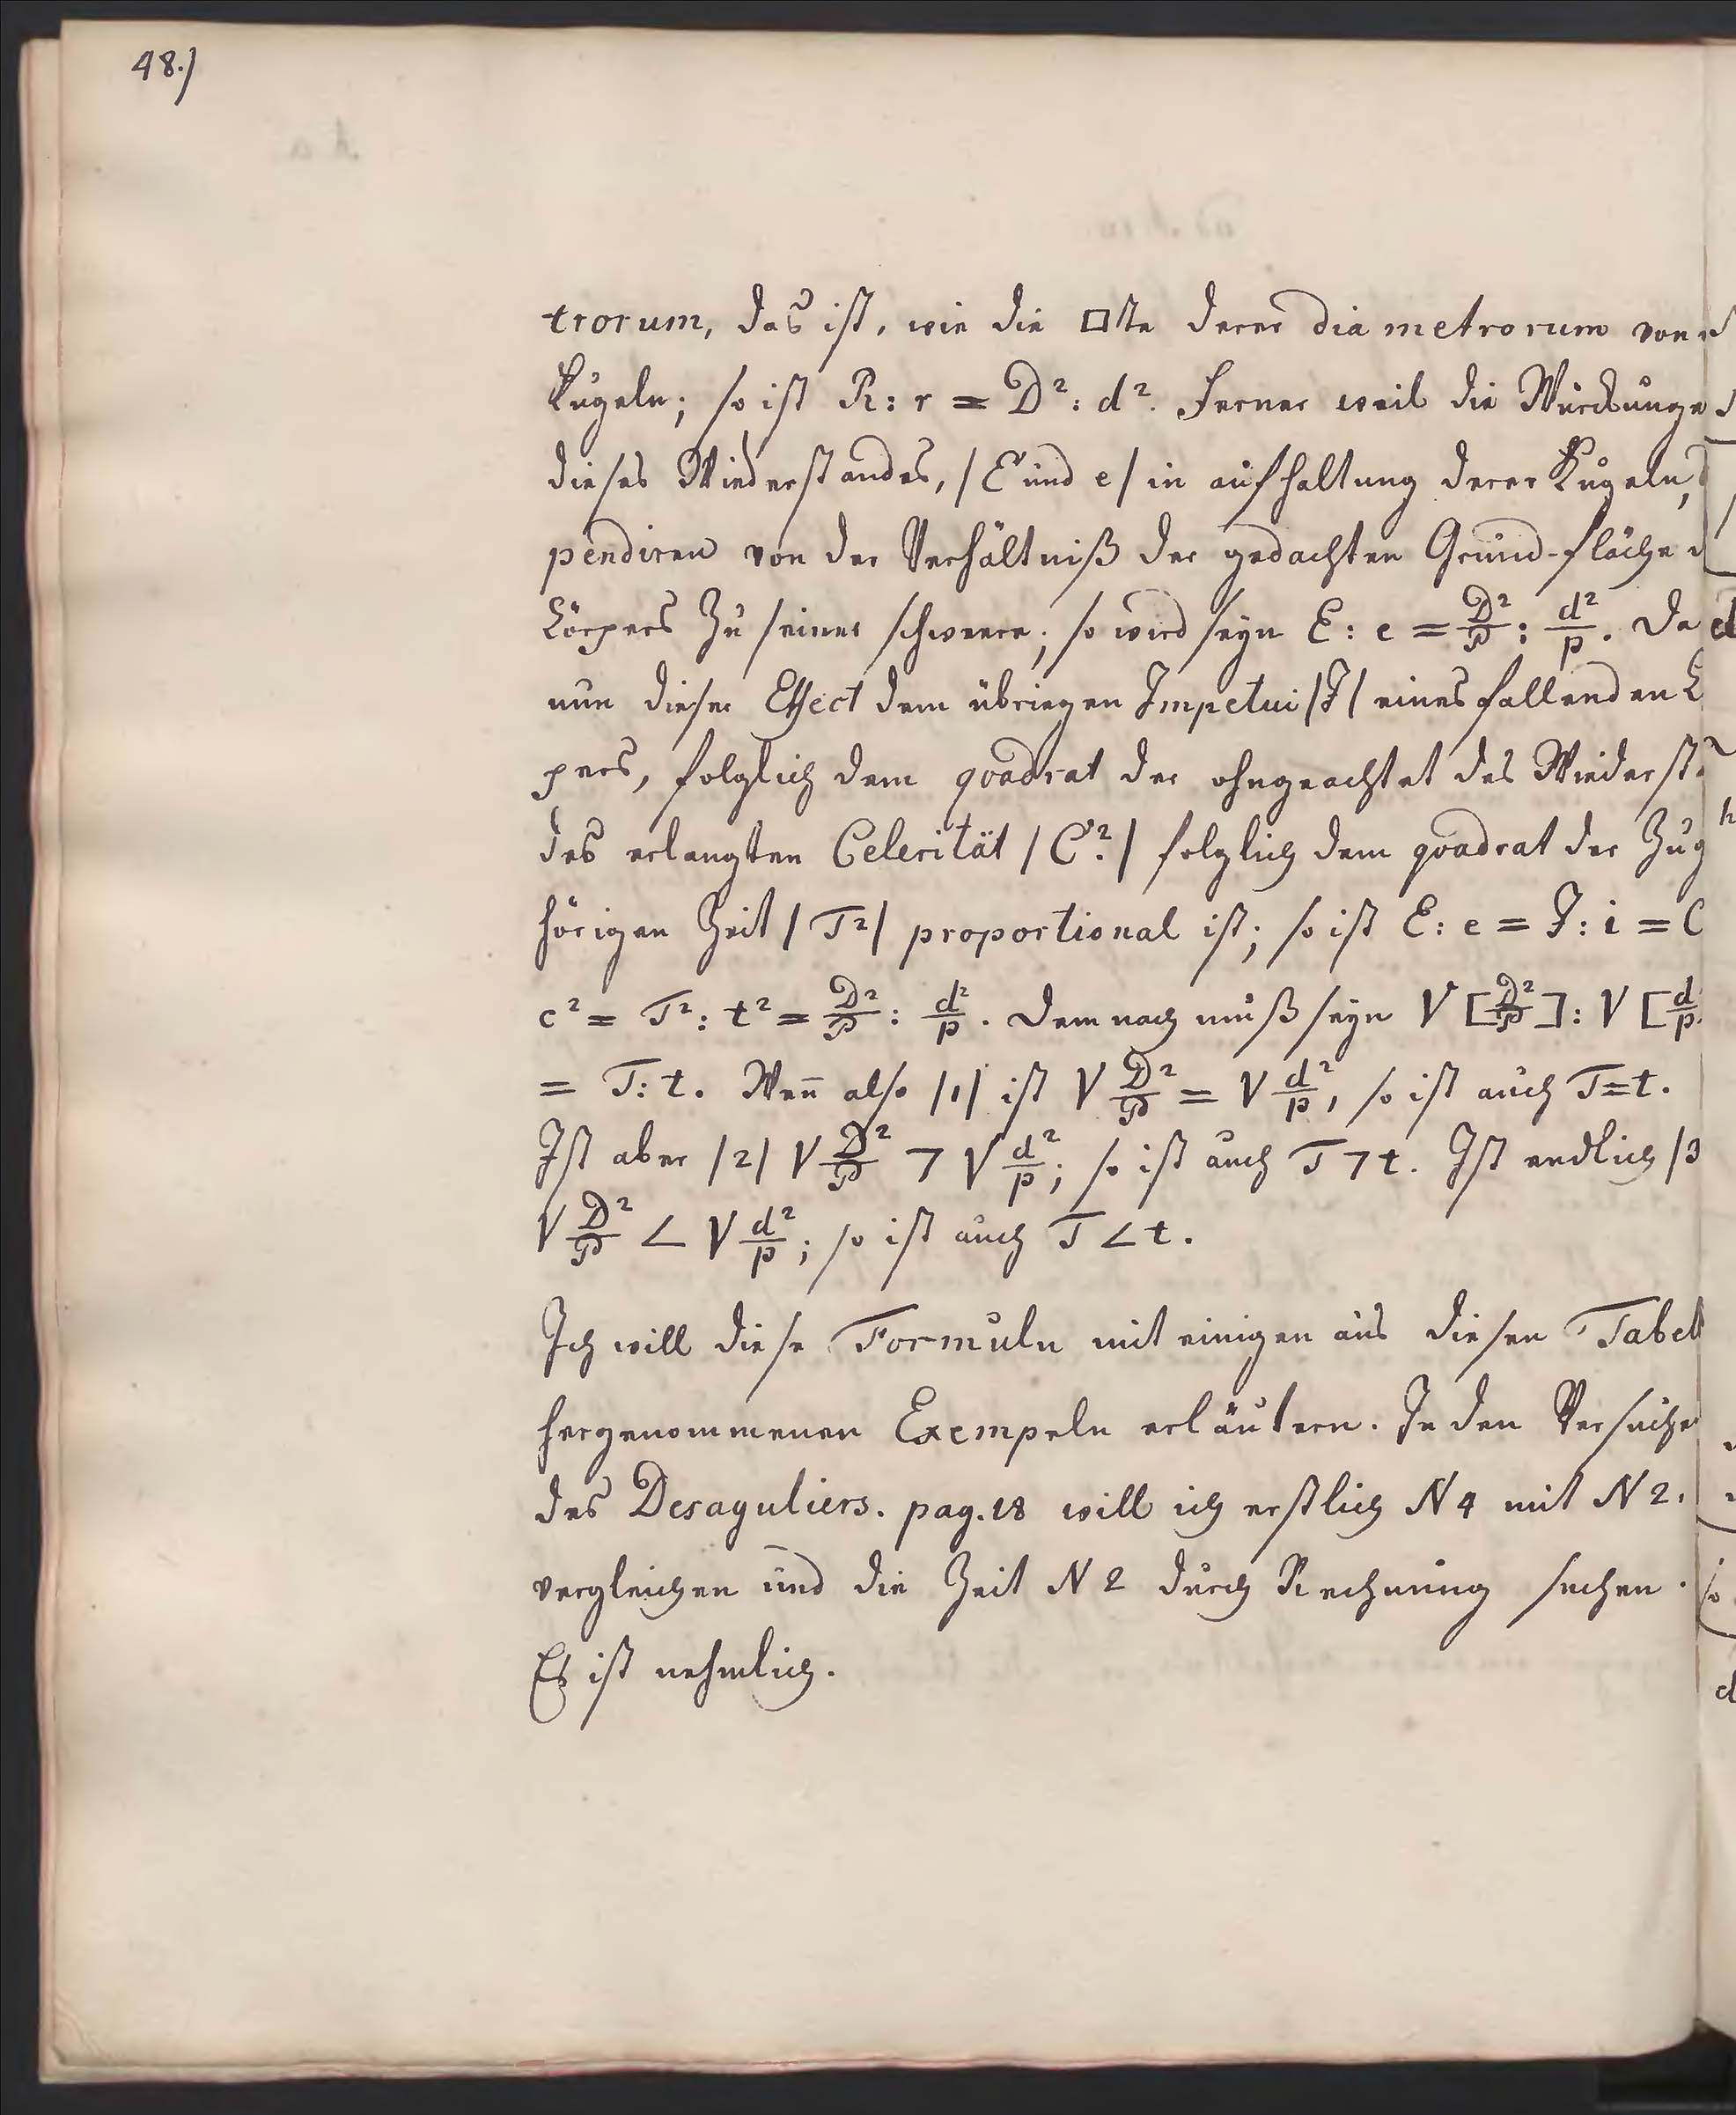 48.)
trorum, das ist, wie die □te derer diametrorum von
Kugeln; so ist R: r = D²: d². Ferner weil die Würckunge
dieses Wiederstandes, /E und e/ in aufhaltung derer Kugeln,
pendiren von der Verhältniß der gedachten Grund-fläche
Körpers zu seiner schweere; so wird seyn E: e = D²/P : d²/p. Da
nun dieser Effect dem übriegen Impetui /I/ eines fallenden K
pers, folglich dem quadrat der ohngeachtet des Wiederst
des erlangten Celerität /C²./ folglich dem quadrat der Zug
hörigen Zeit /T²/ proportional ist; so ist E: e = I: i = C
c² = T²: t² = D²/P : d²/p. Demnach muß seyn √[D²/P]: √[d/p
= T: t. Wen̄ also /1/ ist √D²/P = √d²/p, so ist auch T=t.
Ist aber /2/ √D²/P > √d²/p; so ist auch T > t. Ist endlich /3
√D²/P < √d²/p; so ist auch T < t.
Ich will diese Formuln mit einigen aus diesen Tabel
hergenommenen Exempeln erläutern. In den Versuche
des Desaguliers. pag. 18 will ich erstlich N 4 mit N 2.
vergleichen und die Zeit N 2 durch Rechnung suchen.
Es ist nehmlich.